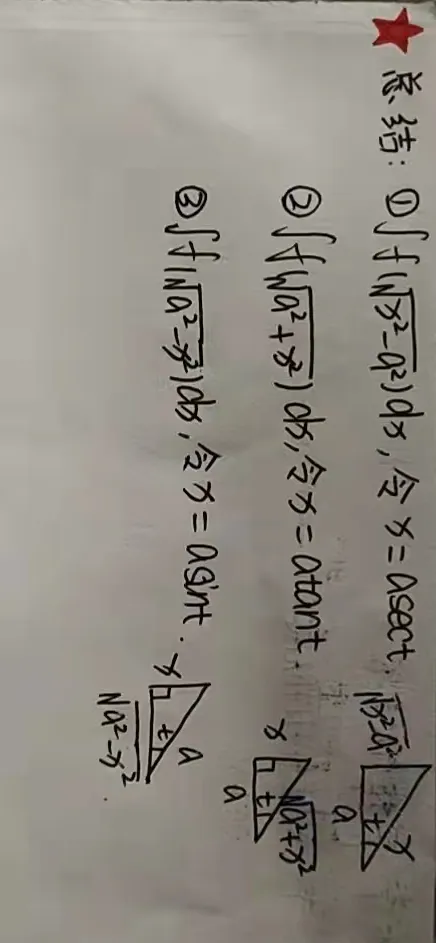 总结：① ∫f(√x²-a²)dx，令x=asect. √x²-a² x t a
② ∫f(√a²+x²)dx，令x=atant. x √a²+x² t a
③ ∫f(√a²-x²)dx，令x=asint. x a t √a²-x².